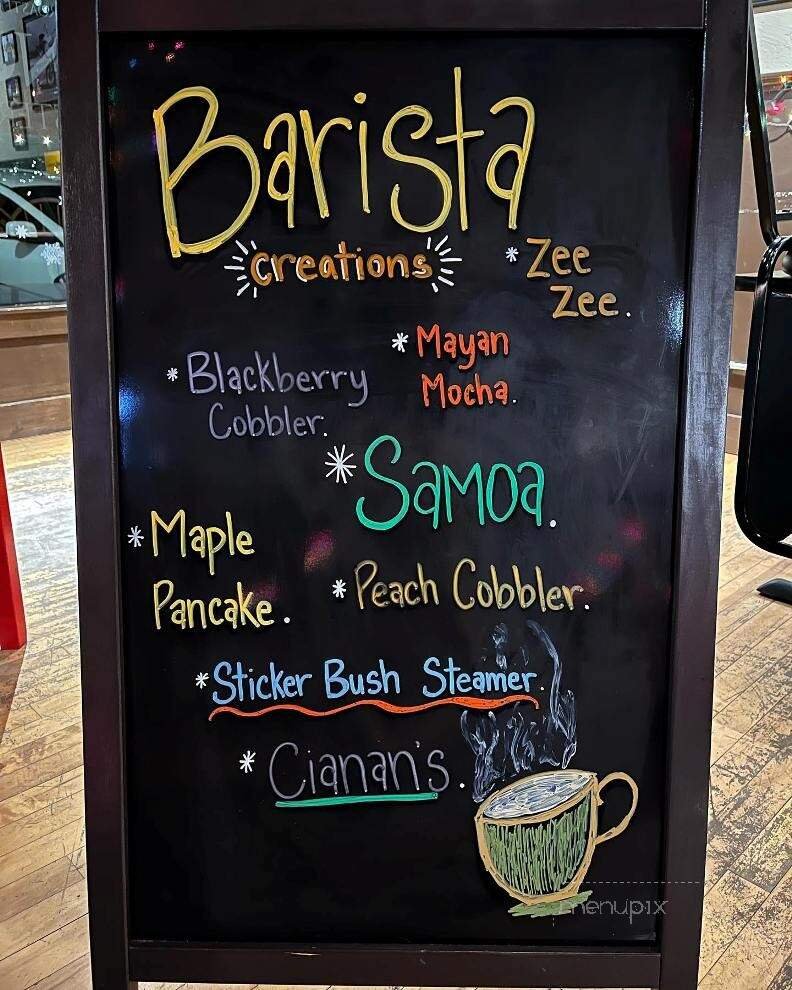 Barista
creations
* Zee
Zee.
* Mayan
Mocha.
* Blackberry
Cobbler.
* Samoa.
* Maple
Pancake.
* Peach Cobbler.
* Sticker Bush Steamer.
* Cianan's.
menupix